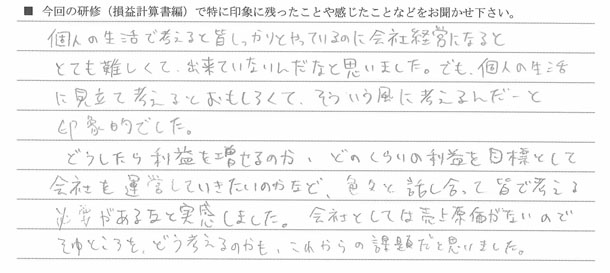 ■ 今回の研修（損益計算書編）で特に印象に残ったことや感じたことなどをお聞かせ下さい。
個人の生活で考えると皆しっかりとやっているのに会社経営になると
とても難しくて、出来ていないんだなと思いました。でも、個人の生活
に見立て考えるとおもしろくて、そういう風に考えるんだーと
印象的でした。
どうしたら利益を増せるのか、どのくらいの利益を目標として
会社を運営していきたいのかなど、色々と話し合って皆で考える
必要があるなと実感しました。会社としては売上原価がないので
そのところを、どう考えるのかも、これからの課題だと思いました。